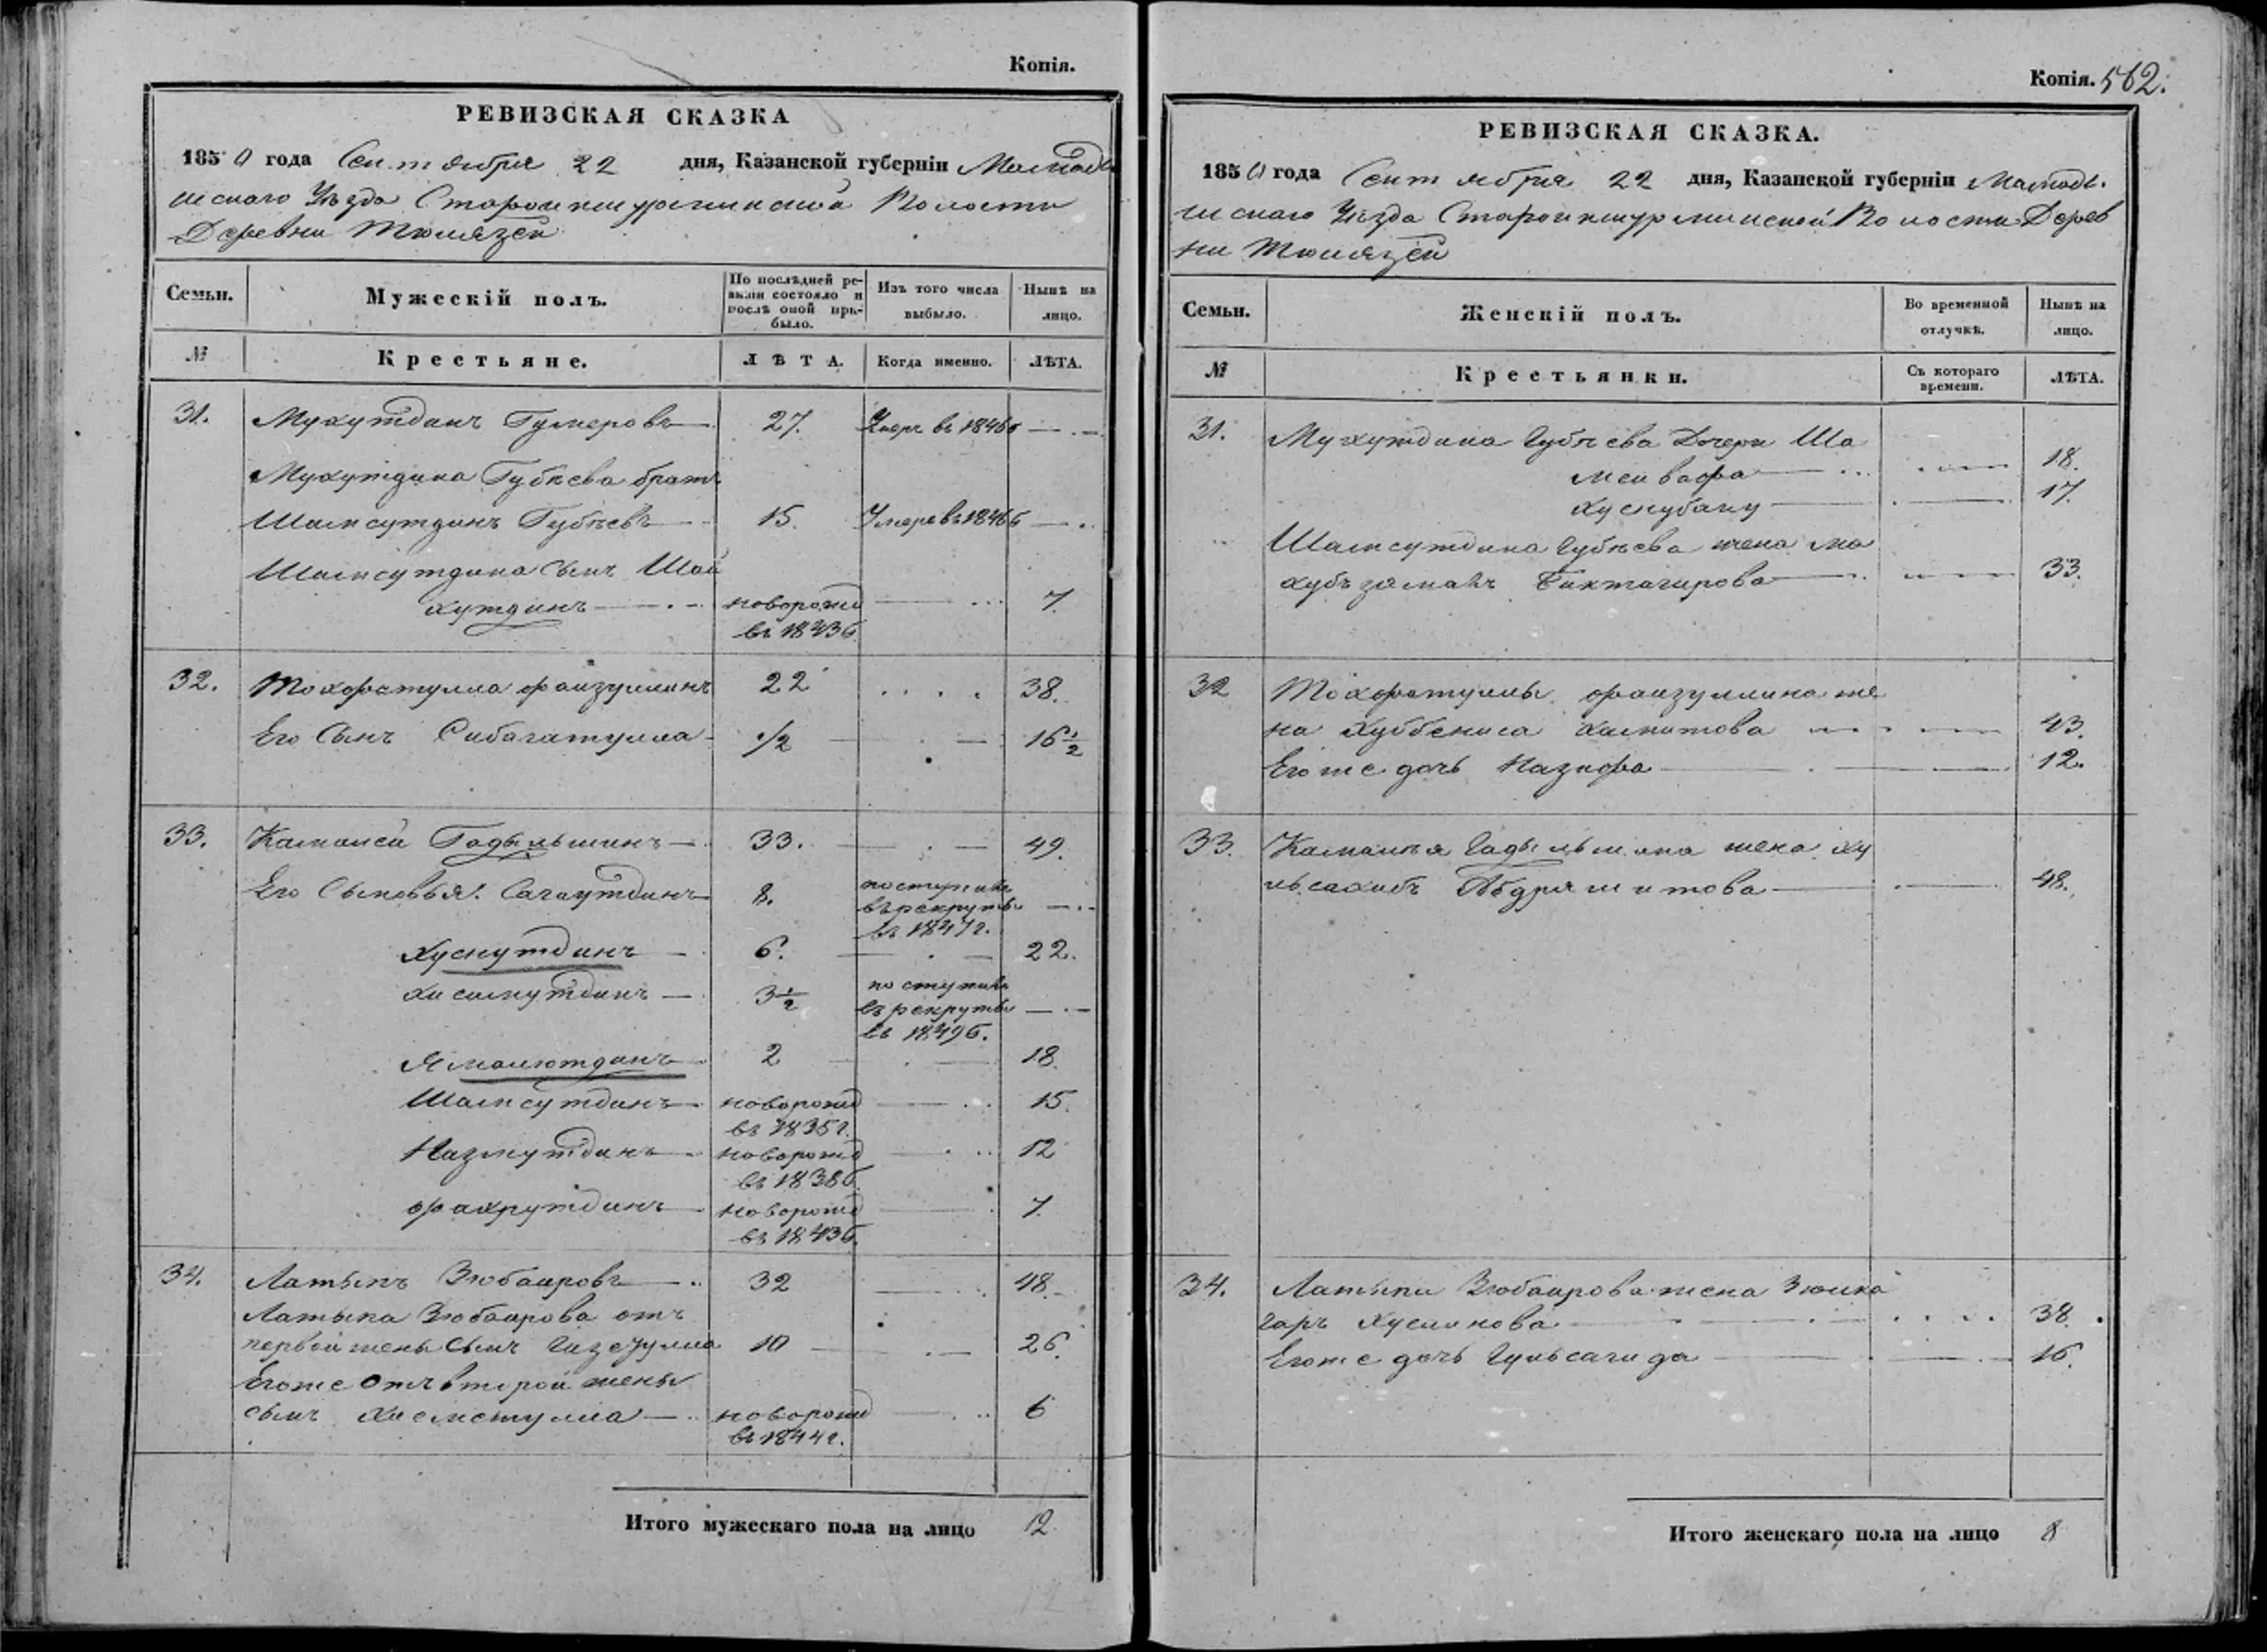 Копія.
РЕВИЗСКАЯ СКАЗКА
1850 года Сентября 22 дня, Казанской губерніи Мамады-
шскаго Уѣзда Староикшурминской Волости
Деревни Тюлязей
Семьи. Мужескій полъ. По послѣдней ре-визіи состояло и послѣ оной при-было. Изъ того числа выбыло. Нынѣ на лицо.
№ Крестьяне. ЛѢТА. Когда именно. ЛѢТА.
31. Мухутдинъ Гумеровъ 27. Умеръ въ 1846г
Мухутдина Губѣева братъ
Шамсутдинъ Губѣевъ 15. Умеръ въ 1846г
Шамсутдина сынъ Шай
хутдинъ новорожд 7.
въ 1843г.
32. Тохфатулла Файзуллинъ 22 38.
Его Сынъ Сибагатулла 1/2 16 1/2
33. Камалей Гадыльшинъ 33. 49.
Его Сыновья: Сагаутдинъ 8. поступилъ
въ рекруты
въ 1847г.
Хуснутдинъ 6. 22.
Хисамутдинъ 3 1/2 поступилъ
въ рекруты
въ 1849г.
Ямалютдинъ 2 18.
Шамсутдинъ новорожд 15.
въ 1835г.
Назмутдинъ новорожд 12
въ 1838г.
Фахрутдинъ новорожд 7.
въ 1843г.
34. Латыпъ Зюбаировъ 32 48.
Латыпа Зюбаирова отъ
первой жены сынъ Гизетулла 10 26.
Егоже отъ второй жены
сынъ Хисметулла новорожд 6
въ 1844г.
Итого мужескаго пола на лицо 12
Копія. 562.
РЕВИЗСКАЯ СКАЗКА.
1850 года Сентября 22 дня, Казанской губерніи Мамады-
шскаго Уѣзда Староикшурминской Волости Дерев
ни Тюлязей
Семьи. Женскій полъ. Во временной отлучкѣ. Нынѣ на лицо.
№ Крестьянки. Съ котораго времени. ЛѢТА.
31. Мухутдина Губѣева Дочери Ша
мсивафа 18.
Хуснубану 17.
Шамсутдина Губѣева жена Ма
хубъзаманъ Биктагирова 33.
32 Тохфатуллы Файзуллина же
на Хуббениса Хамитова 43.
Егоже дочь Назифа 12.
33. Камалѣя Гадыльшина жена Ху
льсахибъ Абдряшитова 48.
34. Латыпа Зюбаирова жена Зюлха
гаръ Хусаинова 38.
Егоже дочь Гульсагида 16.
Итого женскаго пола на лицо 8